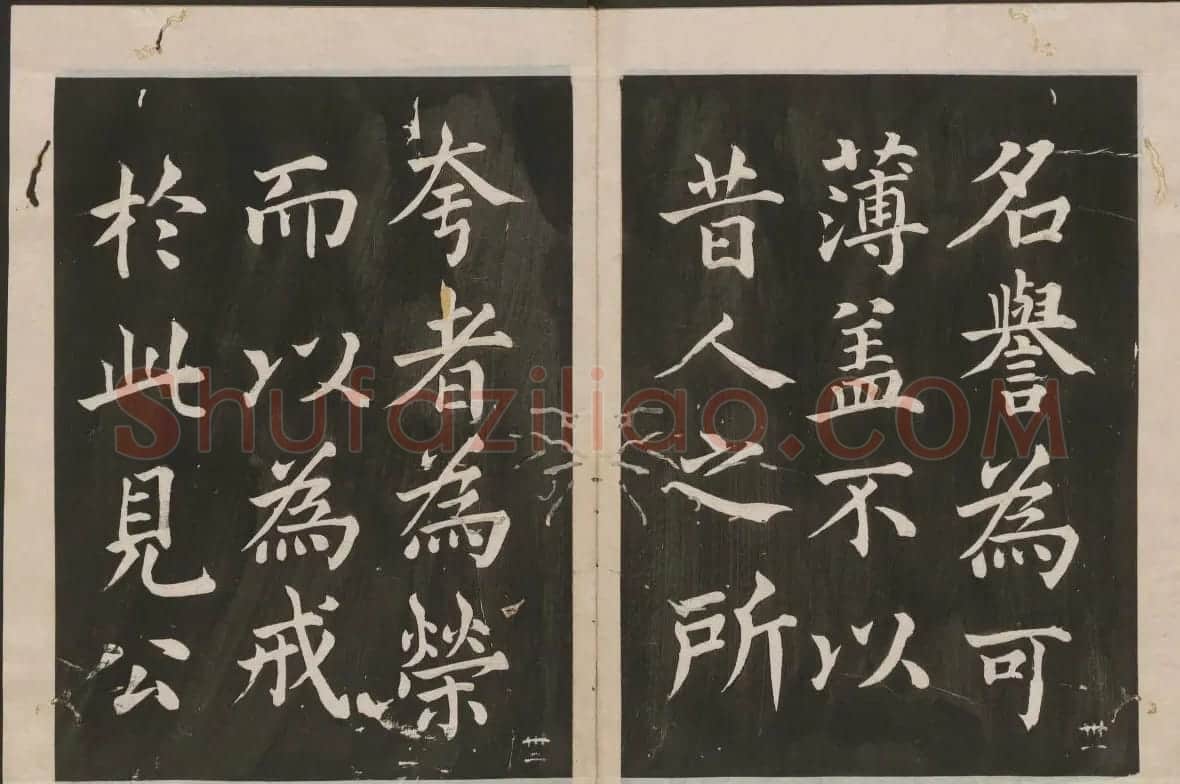 名譽為可
薄盖不以
昔人之所
卅一
夸者為榮
而以為戒
於此見公
卅二
Shufaziliao.COM